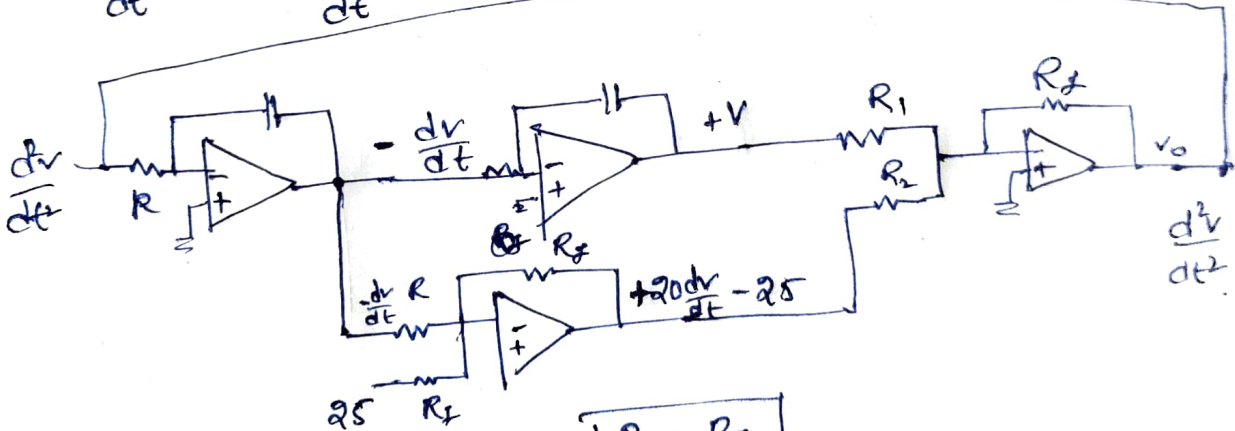 dt dt
d²v/dt² R - + - dv/dt - + +V R₁ R₂ Rf - + v₀ d²v/dt²
Rf
-dv/dt R - + +20 dv/dt - 25
25 Rf